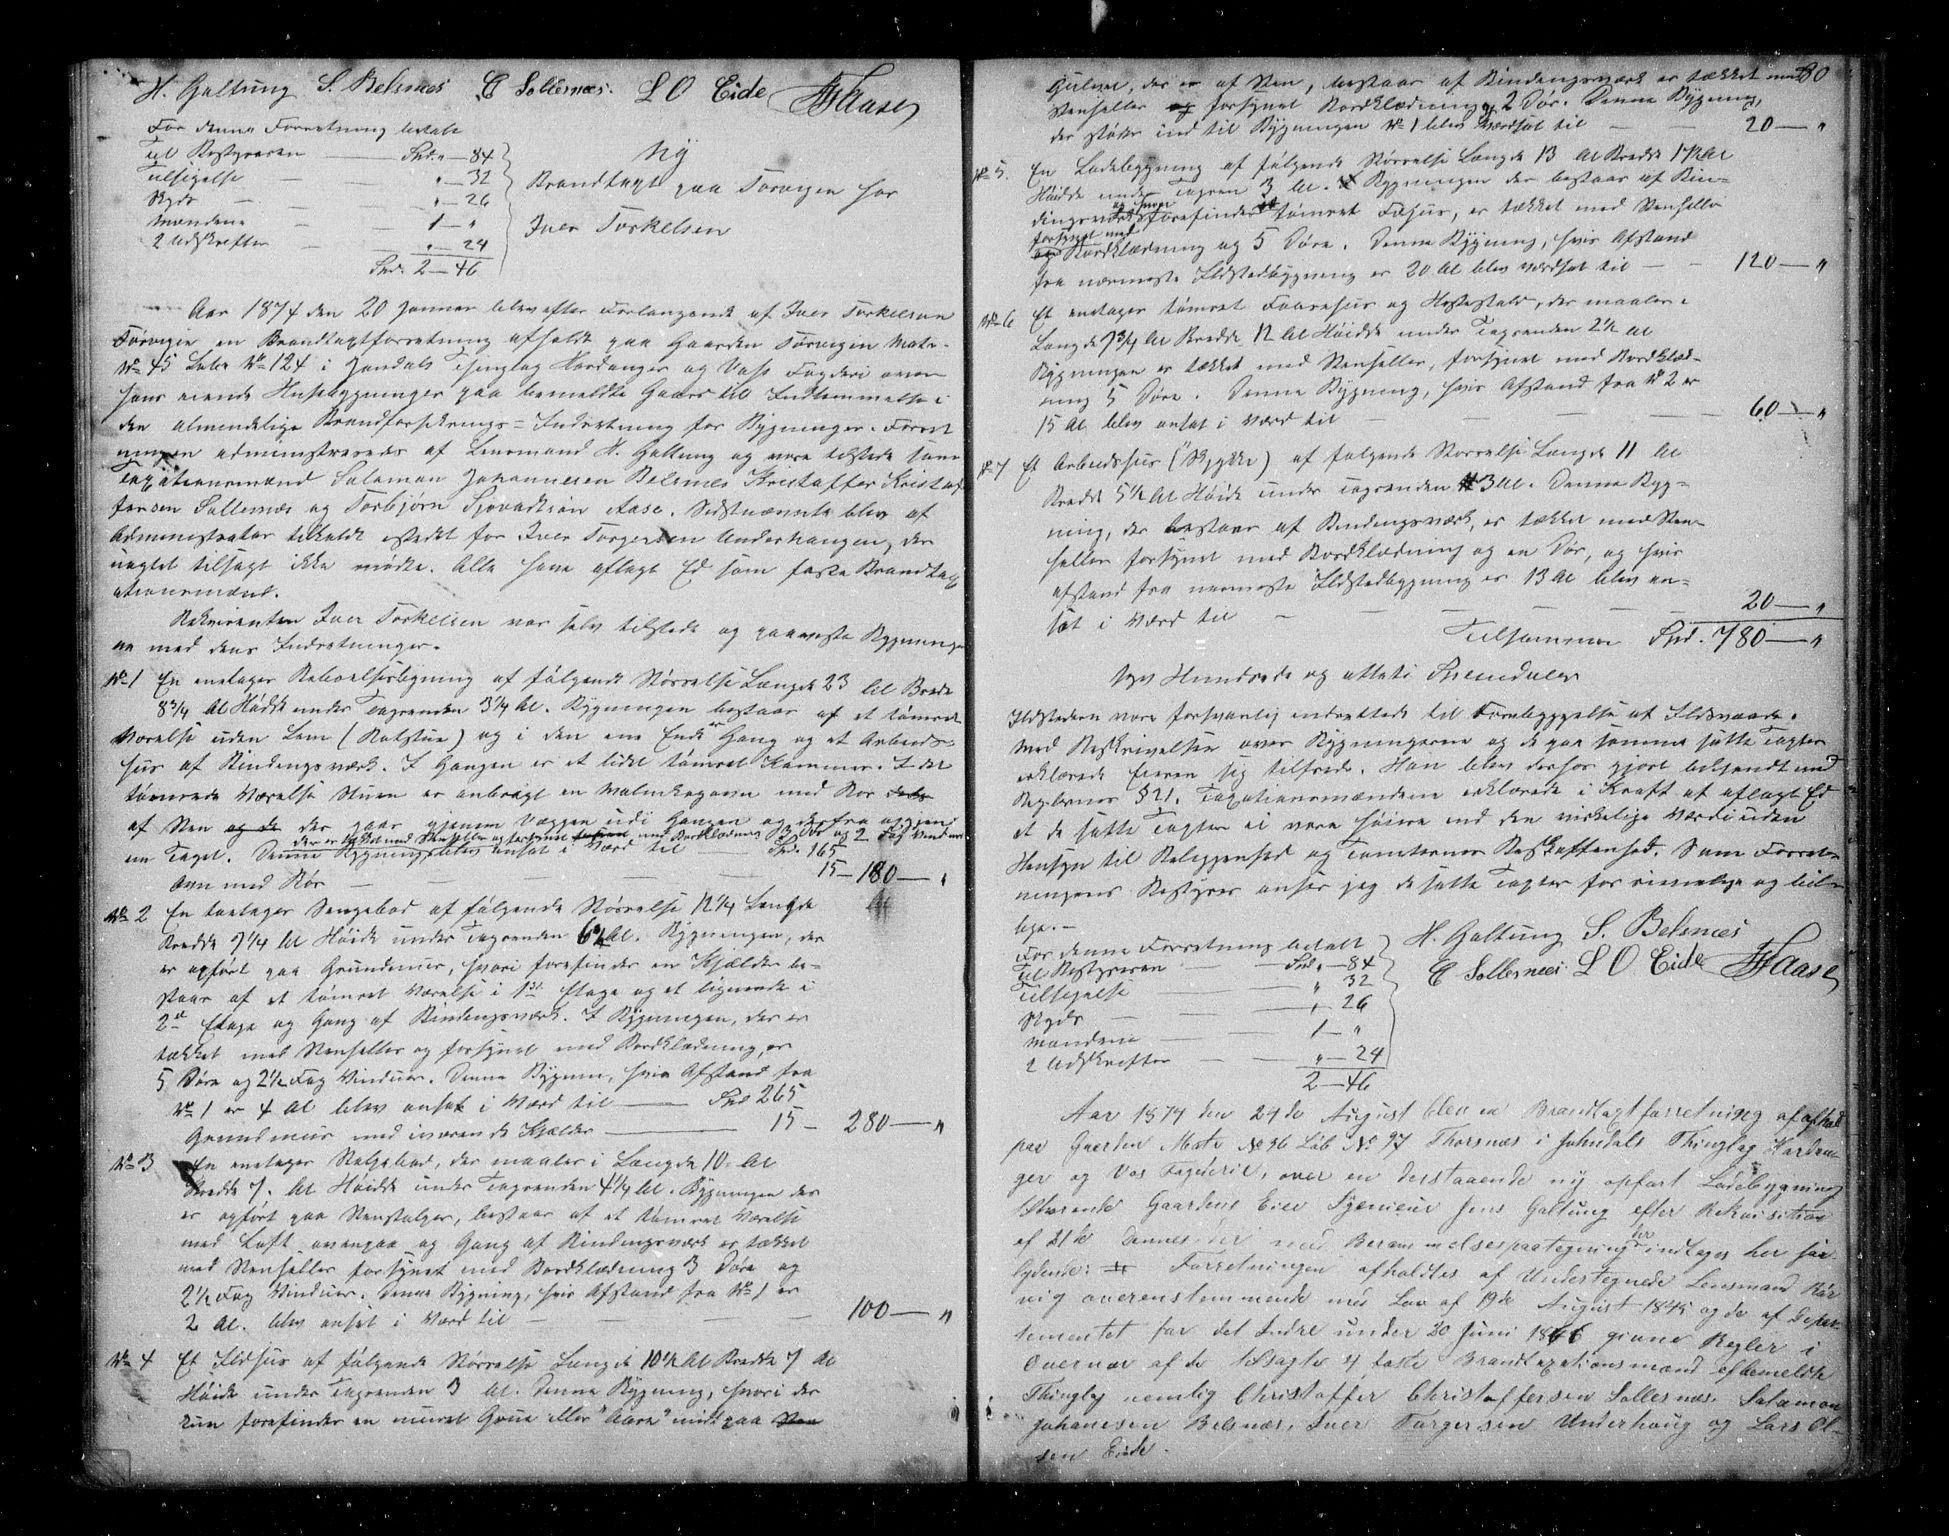 H. Galtung S. Belsnæs C Sollesnæs. L O Eide
For denne Forretning betalt
Til Bestyreren — Spd. „ — 84
Tilsigelse — „ — 32
Skyds — „ — 26
Mændene — 1 — „
2 Udskrifter — „ — 24
Spd. 2 — 46
Ny
Brandtaxt paa Törvigen for
Iver Torkelsen
Aar 1874 den 20 Januar blev efter Forlangende af Iver Torkelsen
Törvigen en Brandtaxtforretning afholdt paa Gaarden Törvigen Matr.
No 45 Løbe No 124 i Jondals Thinglag Hardanger og Voss Fogderi over
hans eiende Husebygninger paa bemeldte Gaard til Indlemmelse i
den almindelige Brandforsikrings-Indretning for Bygninger. Forret
ningen administreredes af Lensmand H. Galtung og vare tilstede som
Taxationsmænd Salamon Johannesen Belsnæs Kristoffer Kristof
fersen Sollesnæs og Torbjörn Sjovadsön Aase. Sidstnævnte blev af
Administrator tilkaldt istedet for Iver Torgersen Underhaugen, der
uagtet tilsagt ikke mødte. Alle have aflagt Ed som faste Brandtax
ationsmænd.
Rekvirenten Iver Torkelsen var selv tilstede og paaviste Bygninger
ne med dens Indretninger.
No 1 En enetages Beboelsesbygning af følgende Størrelse Længde 23 Al Brede
8¾ Al Høide under Tagrenden 3¼ Al. Bygningen bestaar af et tømret
Værelse uden Lem (Rolstue) og i den ene Ende er Gang og et Arbeids-
hus af Bindingsværk. I Gangen er et lidet tømret Kammer. I det
tømrede Værelse Stuen er anbragt en Malmkogeovn med Rør
af Sten og de der gaar gjennem Væggen udi Gangen og derfra op gjen
der er tækket med Stenheller og forsynet med Bordklædning 3 Dør og 2 Fag Vinduer
em Taget. Denne Bygning blev ansat i Værd til — Spd. 165
Ovn med Rør — 15 — 180 — „
No 2 En toetages Sengebod af følgende Størrelse 12¼ Længde
Bredde 7¼ Al Høide under Tagrenden 6½ Al. Bygningen, der
er opført paa Grundmur, hvori forefindes en Kjælder be-
staar af et tømret Værelse i 1st Etage og et lignende i
2d Etage og Gang af Bindingsværk. I Bygningen, der er
tækket med Stenheller og forsynet med Bordklædning, er
5 Døre og 2½ Fag Vinduer. Denne Bygnin, hvis Afstand fra
No 1 er 4 Al blev ansat i Værd til — Spd 265
Grundmur med iværende Kjelder — 15 — 280 — „
No 3 En enetages Melgebod, der maaler i Længde 10 Al
Bredde 7 Al Høide under Tagrenden 4¼ Al. Bygningen der
er opført paa Stenstolper, bestaar af et tømret Værelse
med Loft ovenpaa og Gang af Bindingsværk er tækket
med Stenheller forsynet med Bordklædning 3 Døre og
2½ Fag Vinduer. Denne Bygning, hvis Afstand fra No 1 er
2 Al. blev ansat i Værd til — 100 — „
No 4 Et Ildhus af følgende Størrelse Længde 10½ Al Bredde 7 Al
Høide under Tagrenden 3 Al. Denne Bygning, hvori der
kun forefindes en muret Grue eller "Aare" midt paa Sten
80
Gulvet, der er af Sten, bestaar af Bindingsværk er tækket med
Stenheller og forsynet Bordklædning og 2 Dør. Denne Bygning
der støder ind til Bygningen No 1 blev værdsat til — 20 — „
No 5. En Ladebygning af følgende Størrelse Længde 13 Al Bredde 17½ Al
Høide under Tagren 3 Al. Bygningen der bestaar af Bin-
dingsværk og hvori forefindes et tømret Fæhus, er tækket med Stenheller
forsynet med
Bordklædning og 5 Døre. Denne Bygning, hvis Afstand
fra nærmeste Ildstedbygning er 20 Al blev værdsat til — 120 — „
No 6 Et enetages tømret Faarehus og Hestestald, der maaler i
Længde 7¾ Al Bredde 12 Al Høide under Tagrenden 2½ Al
Bygningen er tækket med Stenheller, forsynet med Bordklæd-
ning 5 Døre. Denne Bygning, hvis Afstand fra No 2 er
15 Al blev ansat i Værd til — 60 — „
No 7 Et Arbeidshus ("Skykke") af følgende Størrelse Længde 11 Al
Bredde 5½ Al Høide under Tagrenden 3 Al. Denne Byg-
ning, der bestaar af Bindingsværk, er tækket med Sten-
heller forsynet med Bordklædning og en Dør, og hvis
Afstand fra nærmeste Ildstedbygning er 13 Al blev an-
sat i Værd til — 20 — „
Tilsammen Spd. 780 — „
Syv Hundrede og otteti Speciedaler
Ildstederne vare forsvarlig indrettede til Forebyggelse af Ildsvaade.
Med Beskrivelsen over Bygningerne og de paa samme satte Taxter
erklærede Eieren sig tilfreds. Han blev derhos gjort bekjendt med
Reglernes § 21. Taxationsmændene erklærede i Kraft af aflagt Ed
at de satte Taxter ei vare høiere end den virkelige Værdi uden
Hensyn til Beliggenhed og Tomternes Beskaffenhed. Som Forret
ningens Bestyrer anser jeg de satte Taxter for rimelige og bil-
lige. —
For denne Forretning betalt
Til Bestyreren — Spd „ — 84
Tilsigelse — „ 32
Skyds — „ — 26
Mændene — 1 — „
2 Udskrifter — „ — 24
2 — 46
H. Galtung S. Belsnæs
C Sollesnæs L O Eide
Aar 1874 den 24de August blev en Brandtaxtforretning afholdt
paa Gaarden Matr No 36 Løb No 97 Thorsnæs i Johndals Thinglag Hardan
ger og Vos Fogderie, over en derstaaende ny opført Ladebygning
tilhørende Gaardens Eier Igenieur Jens Galtung efter Rekvisition
af 21de dennes der med Berammelsespaategning der indtages her saa
lydende: Forretningen afholdtes af Undertegnede Lensmand Rør
vig overensstemmende med Lov af 19de August 1845 og de af Depar
tementet for det Indre under 20 Juni 1846 givne Regler i
Overvær af de tilsagte 4 faste Brandtaxationsmænd af bemeldte
Thinglag nemlig Christoffer Christoffersen Sollesnæs, Salamon
Johanesen Belsnæs, Iver Torgersen Underhaug og Lars Ol-
sen Eide.